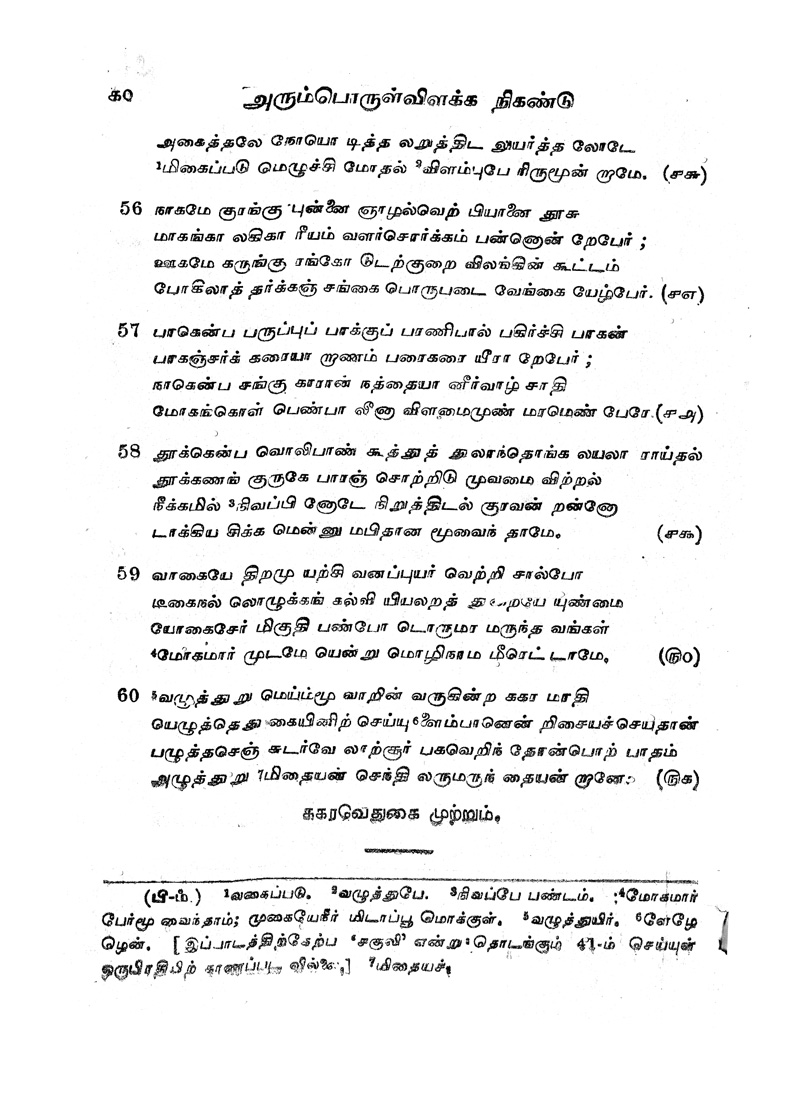 ௧௦ அரும்பொருள்விளக்க நிகண்டு
அகைத்தலே நோயொ டித்த லறுத்திட லுயர்த்த லோடே
¹மிகைப்படு மெழுச்சி மோதல் ²விளம்புபே ரிருமூன் றாமே. (௪௬)
56 நாகமே குரங்கு புன்னை ஞாழல்வெற் பியானை தூசு
மாகங்கா லகிகா ரீயம் வளர்சொர்க்கம் பன்னொன் றேபேர் ;
ஊகமே கருங்கு ரங்கோ டுடற்குறை விலங்கின் கூட்டம்
போகிலாத் தர்க்கஞ் சங்கை பொருபடை வேங்கை யேழ்பேர். (௪௭)
57 பாகென்ப பருப்புப் பாக்குப் பாணிபால் பகிர்ச்சி பாகன்
பாகஞ்சர்க் கரையா றாணம் பரைகரை யீரா றேபேர் ;
நாகென்ப சங்கு காரான் நத்தையா னீர்வாழ் சாதி
மோகங்கொள் பெண்பா லீனா விளமைமுண் மரமெண் பேரே.(௪௮)
58 தூக்கென்ப வொலிபாண் கூத்துத் துலாந்தொங்க லயலா ராய்தல்
தூக்கணங் குருகே பாரஞ் சொற்றிடு முவமை விற்றல்
நீக்கமில் ³நிவப்பி னோடே நிறுத்திடல் குரவன் றன்னோ
டாக்கிய சிக்க மென்னு மபிதான மூவைந் தாமே. (௪௯)
59 வாகையே திறமு யற்சி வனப்புயர் வெற்றி சால்போ
டீகைநல் லொழுக்கங் கல்வி யியலறத் துறையே யுண்மை
யோகைசேர் மிகுதி பண்போ டொருமர மருந்த வங்கள்
⁴மோகமார் முடமே யென்று மொழிநாம மீரெட் டாமே. (௫௦)
60 ⁵வழுத்துறு மெய்ம்மூ வாறின் வருகின்ற ககர மாதி
யெழுத்தெதுகையினிற் செய்யு⁶ளைம்பானென் றிசையச்செய்தான்
பழுத்தசெஞ் சுடர்வே லாற்சூர் பகவெறிந் தோன்பொற் பாதம்
அழுத்துறு ⁷மிதையன் செந்தி லருமருந் தையன் றானே. (௫௧)
ககரவெதுகை முற்றும்.
(பி-ம்.) ¹வகைப்படு. ²வழுத்துபே. ³நிவப்பே பண்டம். ⁴மோகமார்
பேர்மூ வைந்தாம்; முகையேநீர் மிடாப்பூ மொக்குள். ⁵வழுத்துயிர். ⁶ளேழே
ழென். [இப்பாடத்திற்கேற்ப 'சகுலி' என்று தொடங்கும் 41-ம் செய்யுள்
ஒருபிரதியிற் காணப்பட வில்லை.] ⁷மிதையச்.